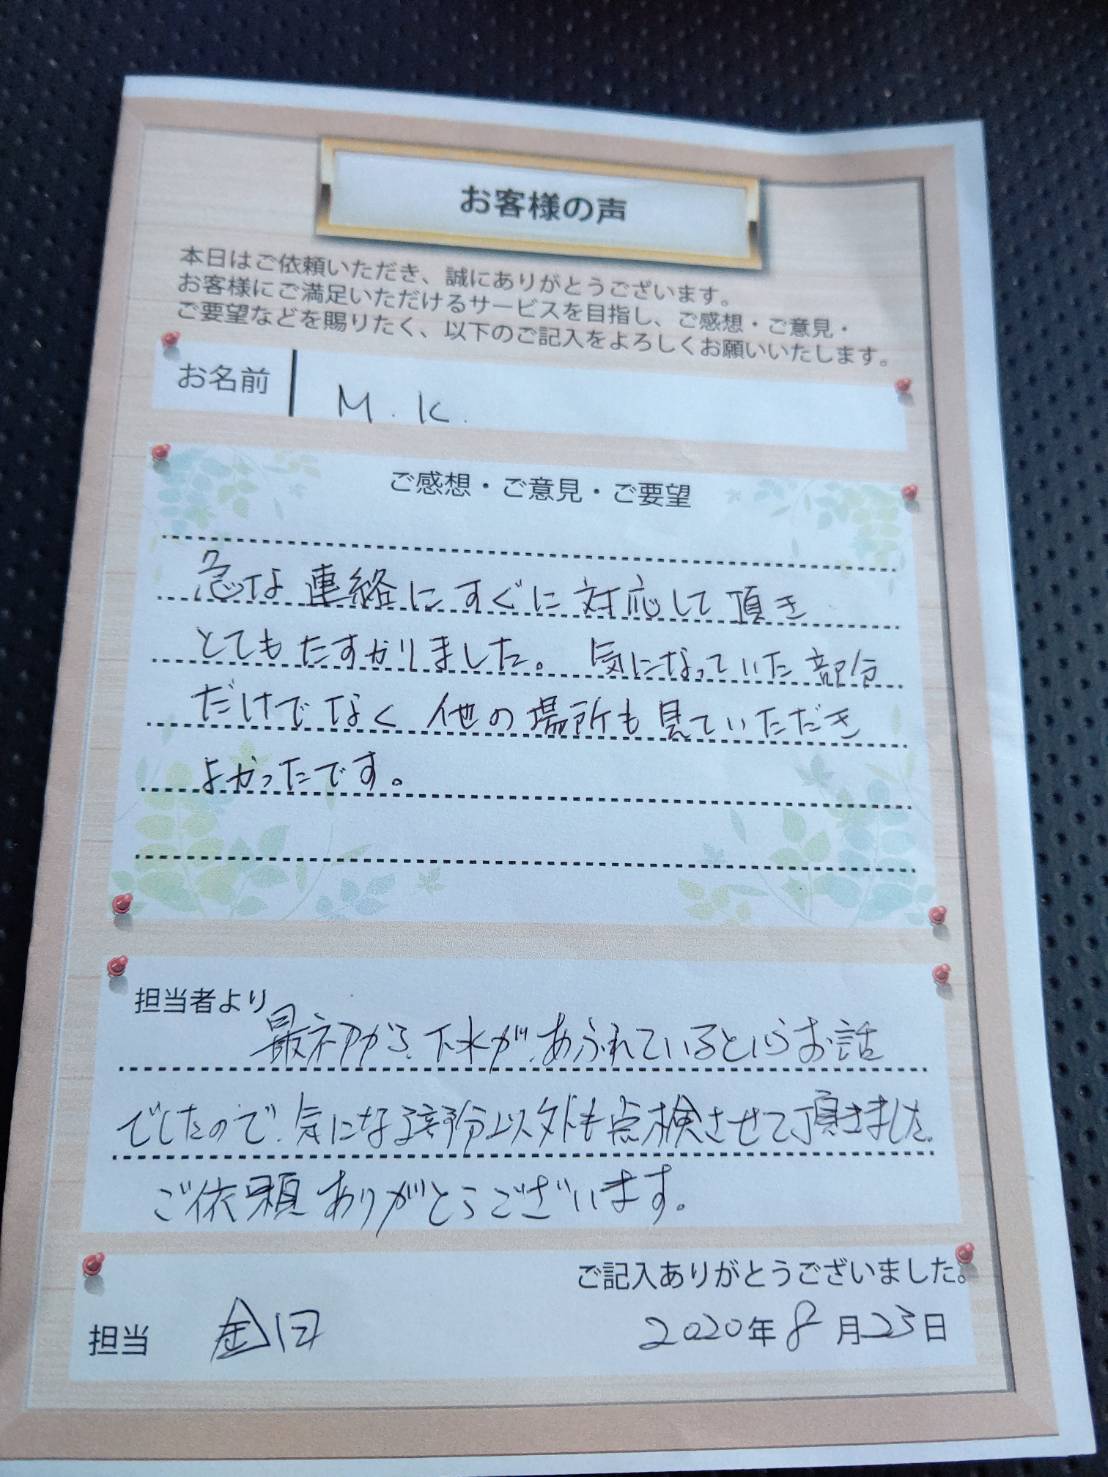 お客様の声
本日はご依頼いただき、誠にありがとうございます。
お客様にご満足いただけるサービスを目指し、ご感想・ご意見・
ご要望などを賜りたく、以下のご記入をよろしくお願いいたします。
お名前 M.K.
ご感想・ご意見・ご要望
急な連絡にすぐに対応して頂き
とてもたすかりました。気になっていた部分
だけでなく他の場所も見ていただき
よかったです。
担当者より
最初から、下水が、あふれているというお話
でしたので、気になる部分以外も点検させて頂きました。
ご依頼ありがとうございます。
ご記入ありがとうございました。
担当
2020年8月23日